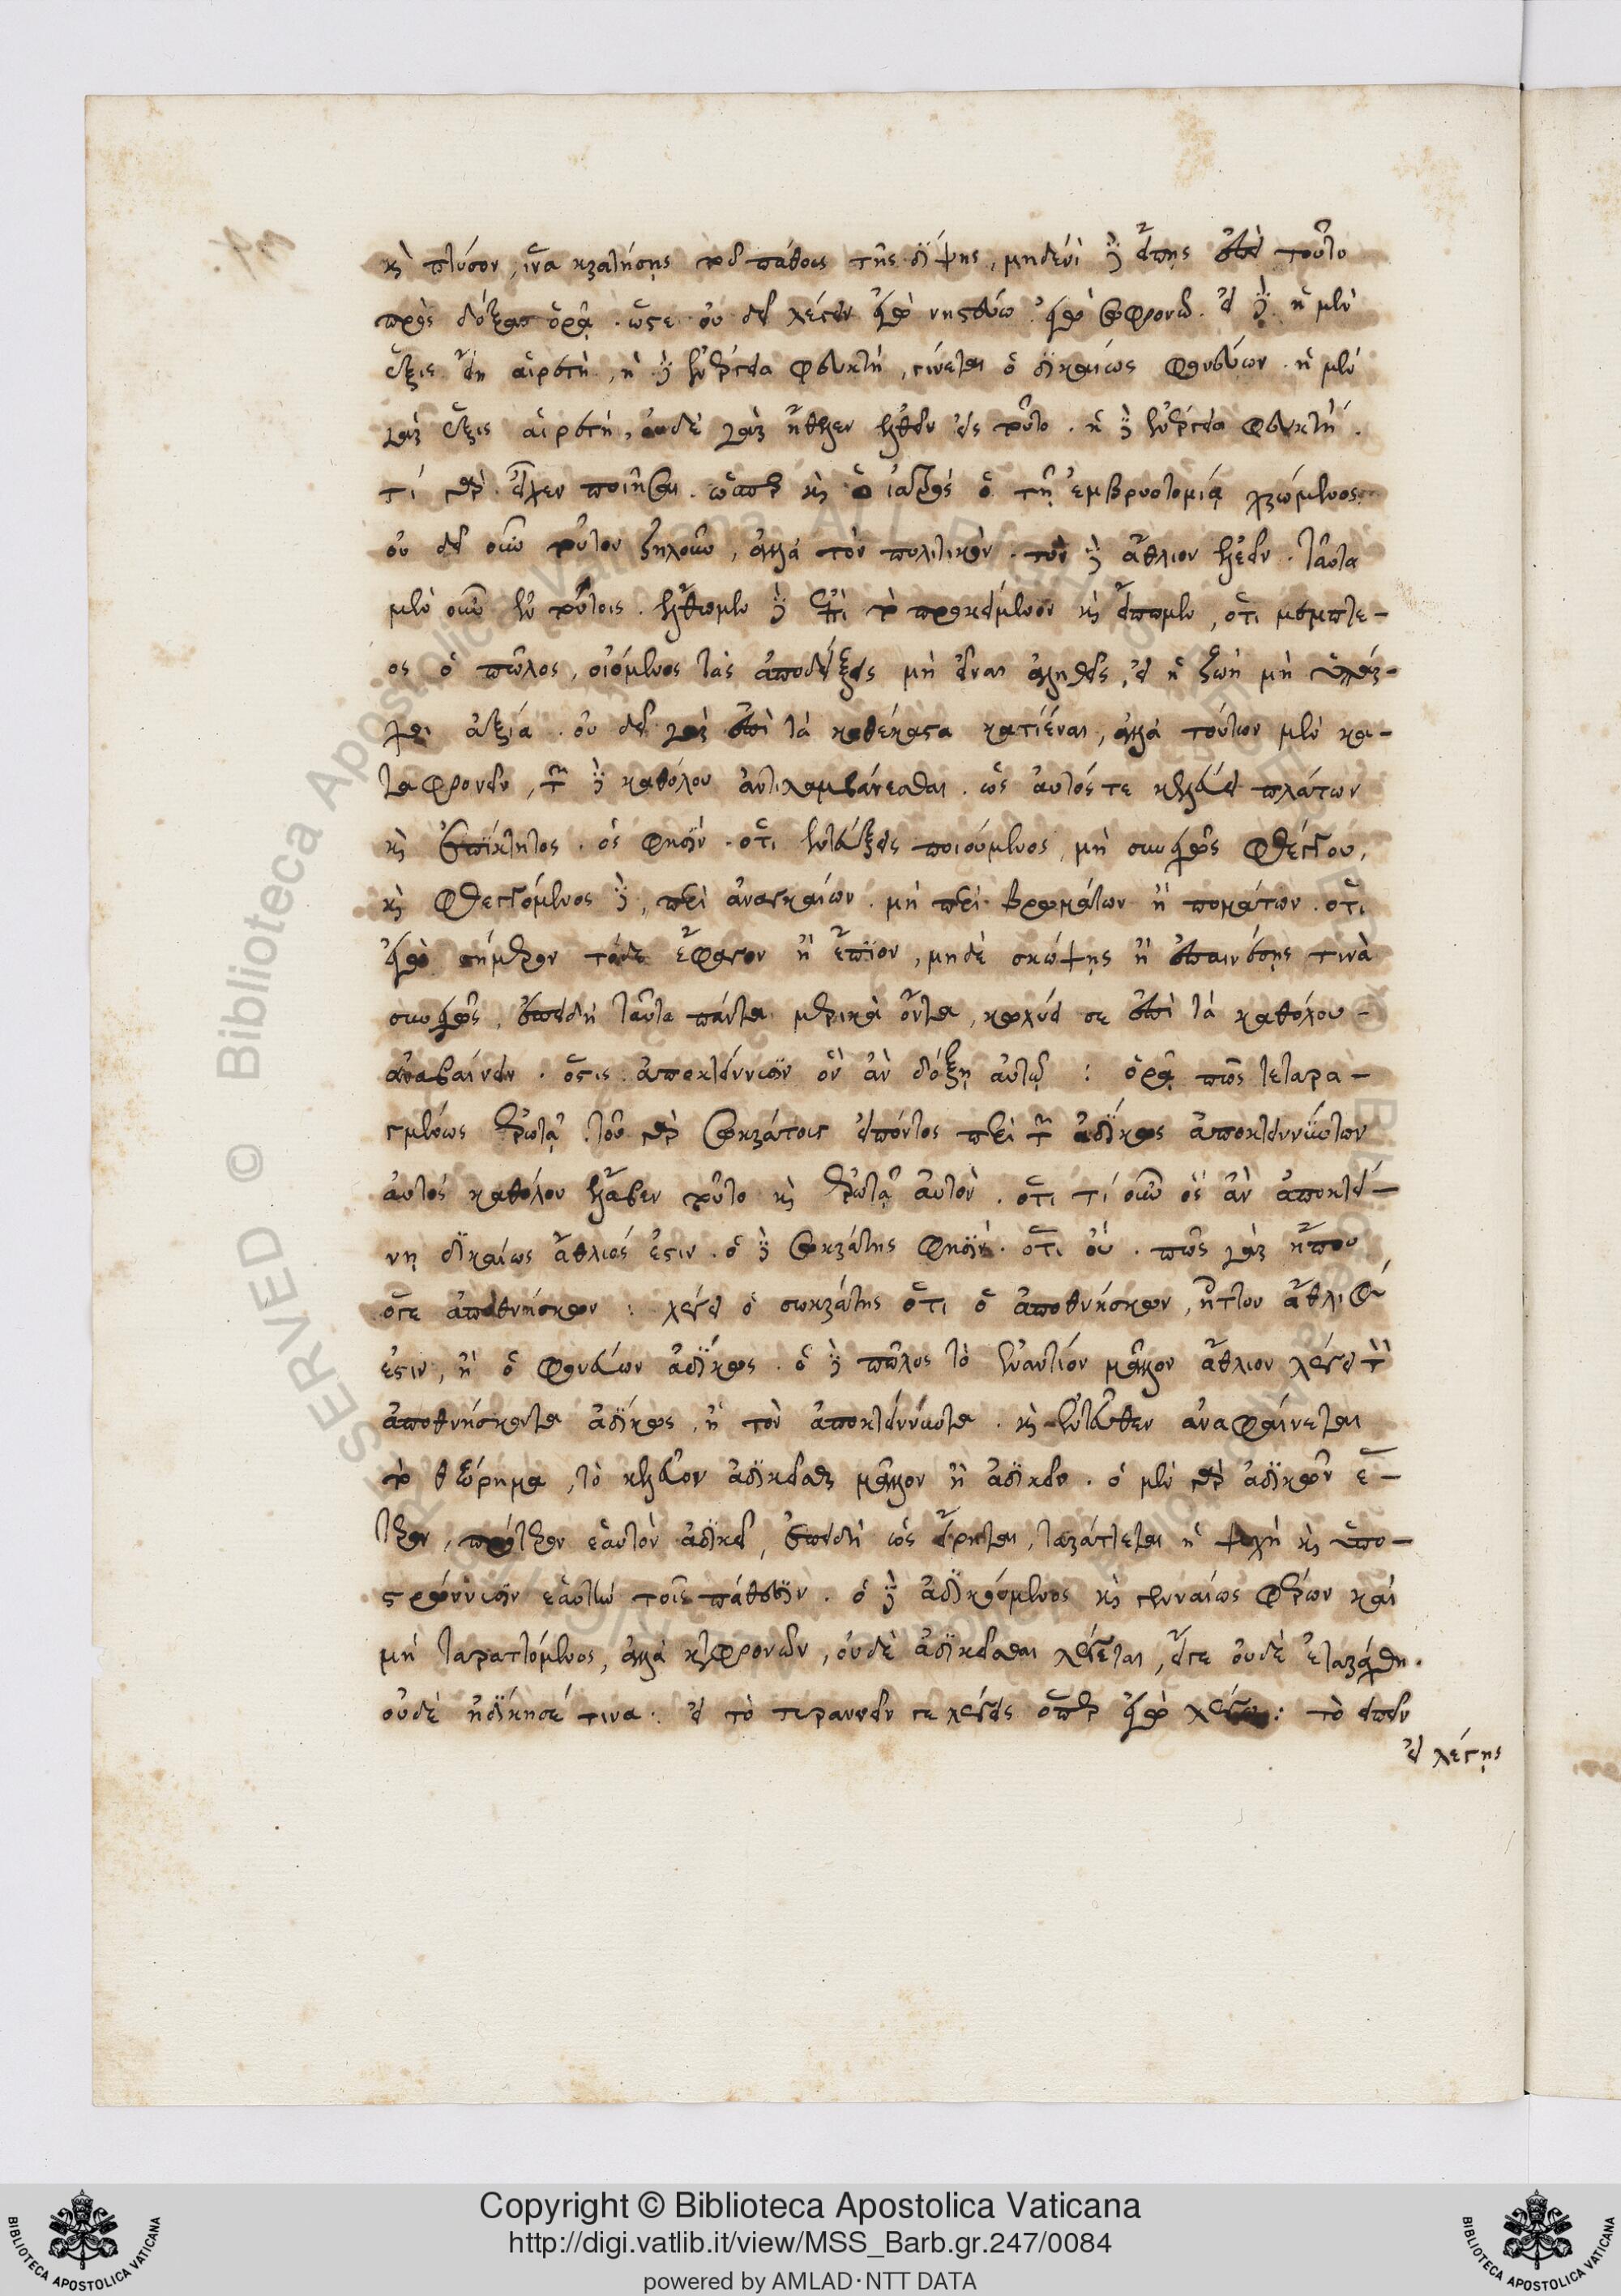 καὶ πτύσον, ἵνα κρατήσῃς τοῦ πάθους τῆς δίψης, μηδενὶ δὲ εἴπῃς ἐπεὶ τοῦτο
πρὸς δόξαν ὁρᾷ. ὥστε οὐ δεῖ λέγειν ἐγὼ νηστεύω. ἐγὼ σωφρονῶ. εἰ δὲ ἡ μὲν
ἕξις εἴη αἱρετὴ, ἡ δὲ ἐνέργεια φευκτὴ, γίνεται ὁ δικαίως φονεύων. ἡ μὲν
γὰρ ἕξις αἱρετή, οὐδὲ γὰρ ἤθελεν ἐλθεῖν εἰς τοῦτο. ἡ δὲ ἐνέργεια φευκτή.
τί γὰρ εἶχεν ποιῆσαι. ὥσπερ καὶ ὁ ἰατρὸς ὁ τῇ ἐμβρυοτομίᾳ χρώμενος.
οὐ δεῖ οὖν τοῦτον ζηλοῦν, ἀλλὰ τὸν πολιτικόν. τὸν δὲ ἄθλιον ἐλεεῖν. ταῦτα
μὲν οὖν ἐν τούτοις. ἔλθωμεν δὲ ἐπὶ τὸ προκείμενον καὶ εἴπωμεν, ὅτι μεμπτέ-
ος ὁ πῶλος, οἰόμενος τὰς ἀποδείξεις μὴ εἶναι ἀληθεῖς, εἰ ἡ ζωὴ μὴ ὑπάρ-
χει ἀξία. οὐ δεῖ γὰρ ἐπὶ τὰ καθέκαστα κατιέναι, ἀλλὰ τούτων μὲν κα-
ταφρονεῖν, τῶν δὲ καθόλου ἀντιλαμβάνεσθαι. ὡς αὐτός τε κελεύει πλάτων
καὶ ἐπίκτητος. ὅς φησὶν. ὅτι ἐντεύξεις ποιούμενος, μὴ συνεχῶς φθέγγου,
καὶ φθεγγόμενος δὲ, περὶ ἀναγκαίων. μὴ περὶ βρωμάτων ἢ πομάτων. ὅτι
ἐγὼ σήμερον τόδε ἔφαγον ἢ ἔπιον, μηδὲ σκώψῃς ἢ ἐπαινέσῃς τινὰ
συνεχῶς, ἐπειδὴ ταῦτα πάντα μερικὰ ὄντα, κωλύει σε ἐπὶ τὰ καθόλου-
ἀναβαίνειν. ὅστις ἀποκτείννυσιν ὃν ἂν δόξῃ αὐτῷ : ὁρᾷ πῶς τεταρα-
γμένως ἐρωτᾷ. τοῦ γὰρ σωκράτους εἰπόντος περὶ τῶν ἀδίκως ἀποκτειννύντων
αὐτὸς καθόλου ἔλαβεν τοῦτο καὶ ἐρωτᾷ αὐτὸν. ὅτι τί οὖν ὃς ἂν ἀποκτεί-
νῃ δικαίως ἄθλιός ἐστιν. ὁ δὲ σωκράτης φησὶν. ὅτι οὐ. πῶς γὰρ ἤπου
ὅγε ἀποθνήσκων : λέγει ὁ σωκράτης ὅτι ὁ ἀποθνήσκων, ἧττον ἄθλιός
ἐστιν, ἢ ὁ φονεύων ἀδίκως. ὁ δὲ πῶλος τὸ ἐναντίον μᾶλλον ἄθλιον λέγει τὸν
ἀποθνήσκοντα ἀδίκως, ἢ τὸν ἀποκτειννύοντα. καὶ ἐντεῦθεν ἀναφαίνεται
τὸ θεώρημα, τὸ κελεῦον ἀδικεῖσθαι μᾶλλον ἢ ἀδικεῖν. ὁ μὲν γὰρ ἀδικῶν ἕ-
τερον, πρότερον ἑαυτὸν ἀδικεῖ, ἐπειδὴ ὡς εἴρηται, ταράττεται ἡ ψυχὴ καὶ ὑπο-
στρώννυσιν ἑαυτὴν τοῖς πάθεσιν. ὁ δὲ ἀδικούμενος καὶ γενναίως φέρων καὶ
μὴ ταραττόμενος, ἀλλὰ καταφρονῶν, οὐδὲ ἀδικεῖσθαι λέγεται, εἴγε οὐδὲ ἐταράχθη.
οὐδὲ ἠδίκησέ τινα. εἰ τὸ τυραννεῖν γε λέγεις ὅπερ ἐγὼ λέγω : τὸ εἰπεῖν
εἰ λέγῃς